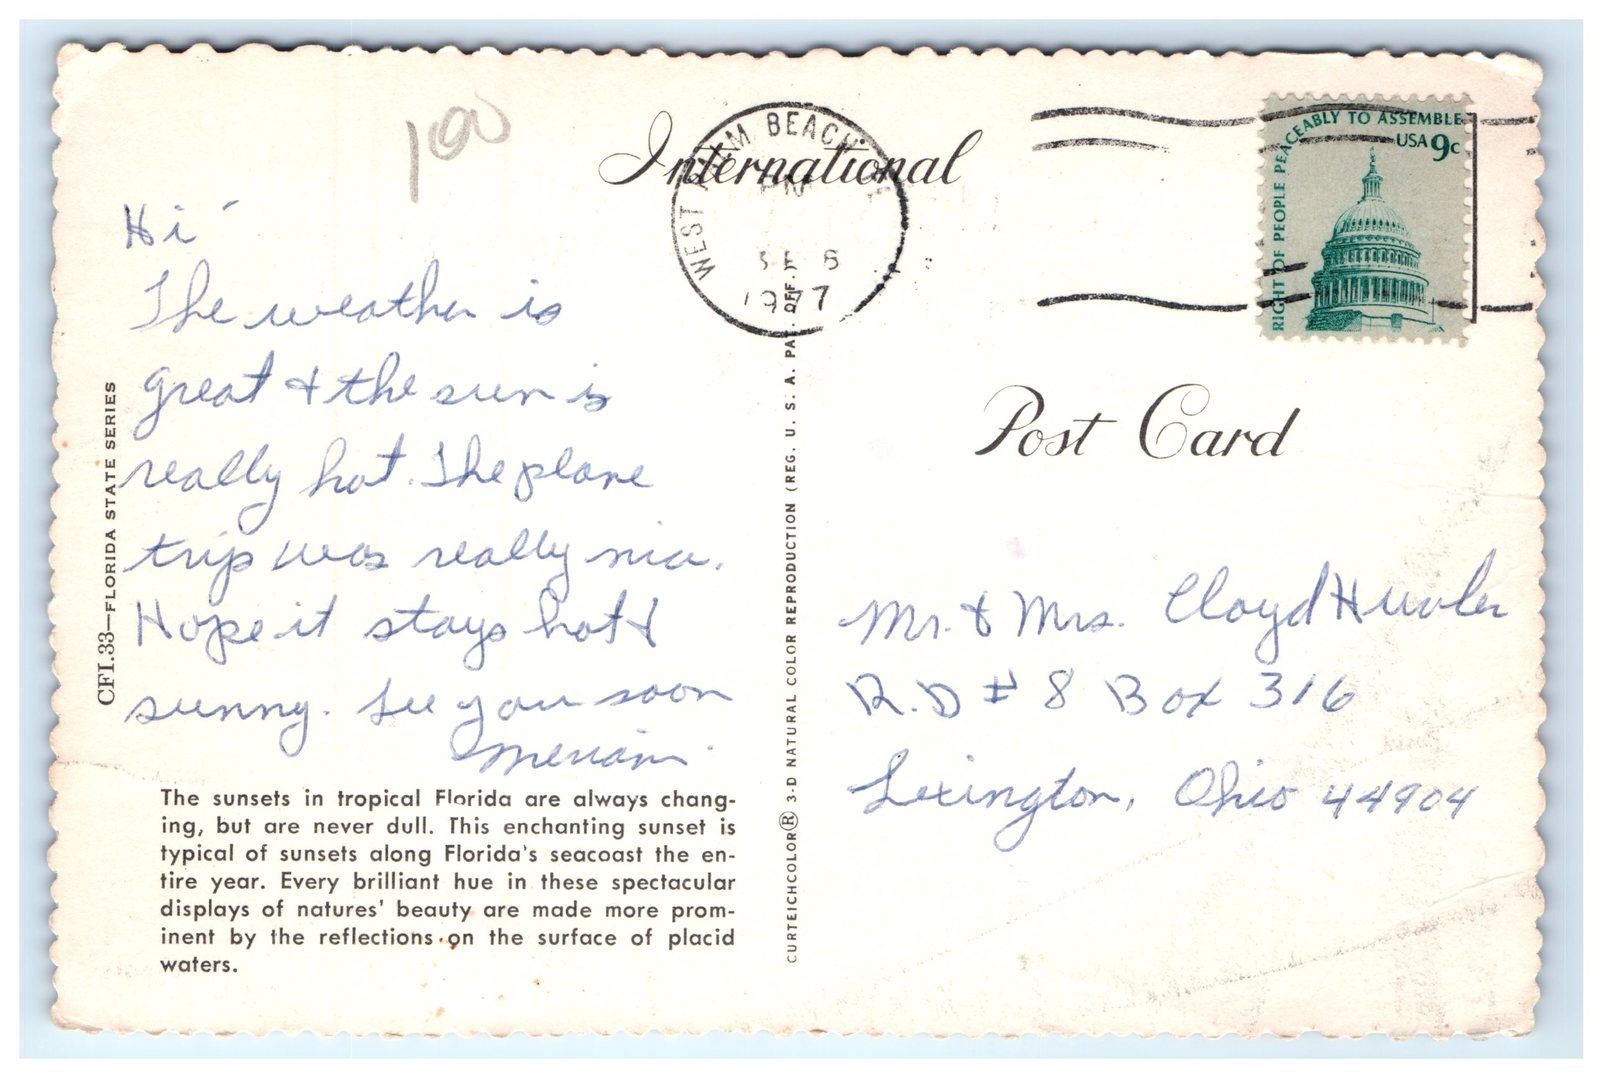 100
International
WEST PALM BEACH
PM
1977
RIGHT OF PEOPLE PEACEABLY TO ASSEMBLE
USA 9c
Post Card
Hi
The weather is
great & the sun is
really hot. The plane
trip was really nice.
Hope it stays hot &
sunny. See you soon
Meriam
Mr. & Mrs. Cloyd
R.D # 8 Box 316
Lexington, Ohio 44904
CFI.33—FLORIDA STATE SERIES
The sunsets in tropical Florida are always chang-
ing, but are never dull. This enchanting sunset is
typical of sunsets along Florida's seacoast the en-
tire year. Every brilliant hue in these spectacular
displays of natures' beauty are made more prom-
inent by the reflections on the surface of placid
waters.
CURTEICHCOLOR® 3-D NATURAL COLOR REPRODUCTION (REG. U. S. A. PAT. OFF.)